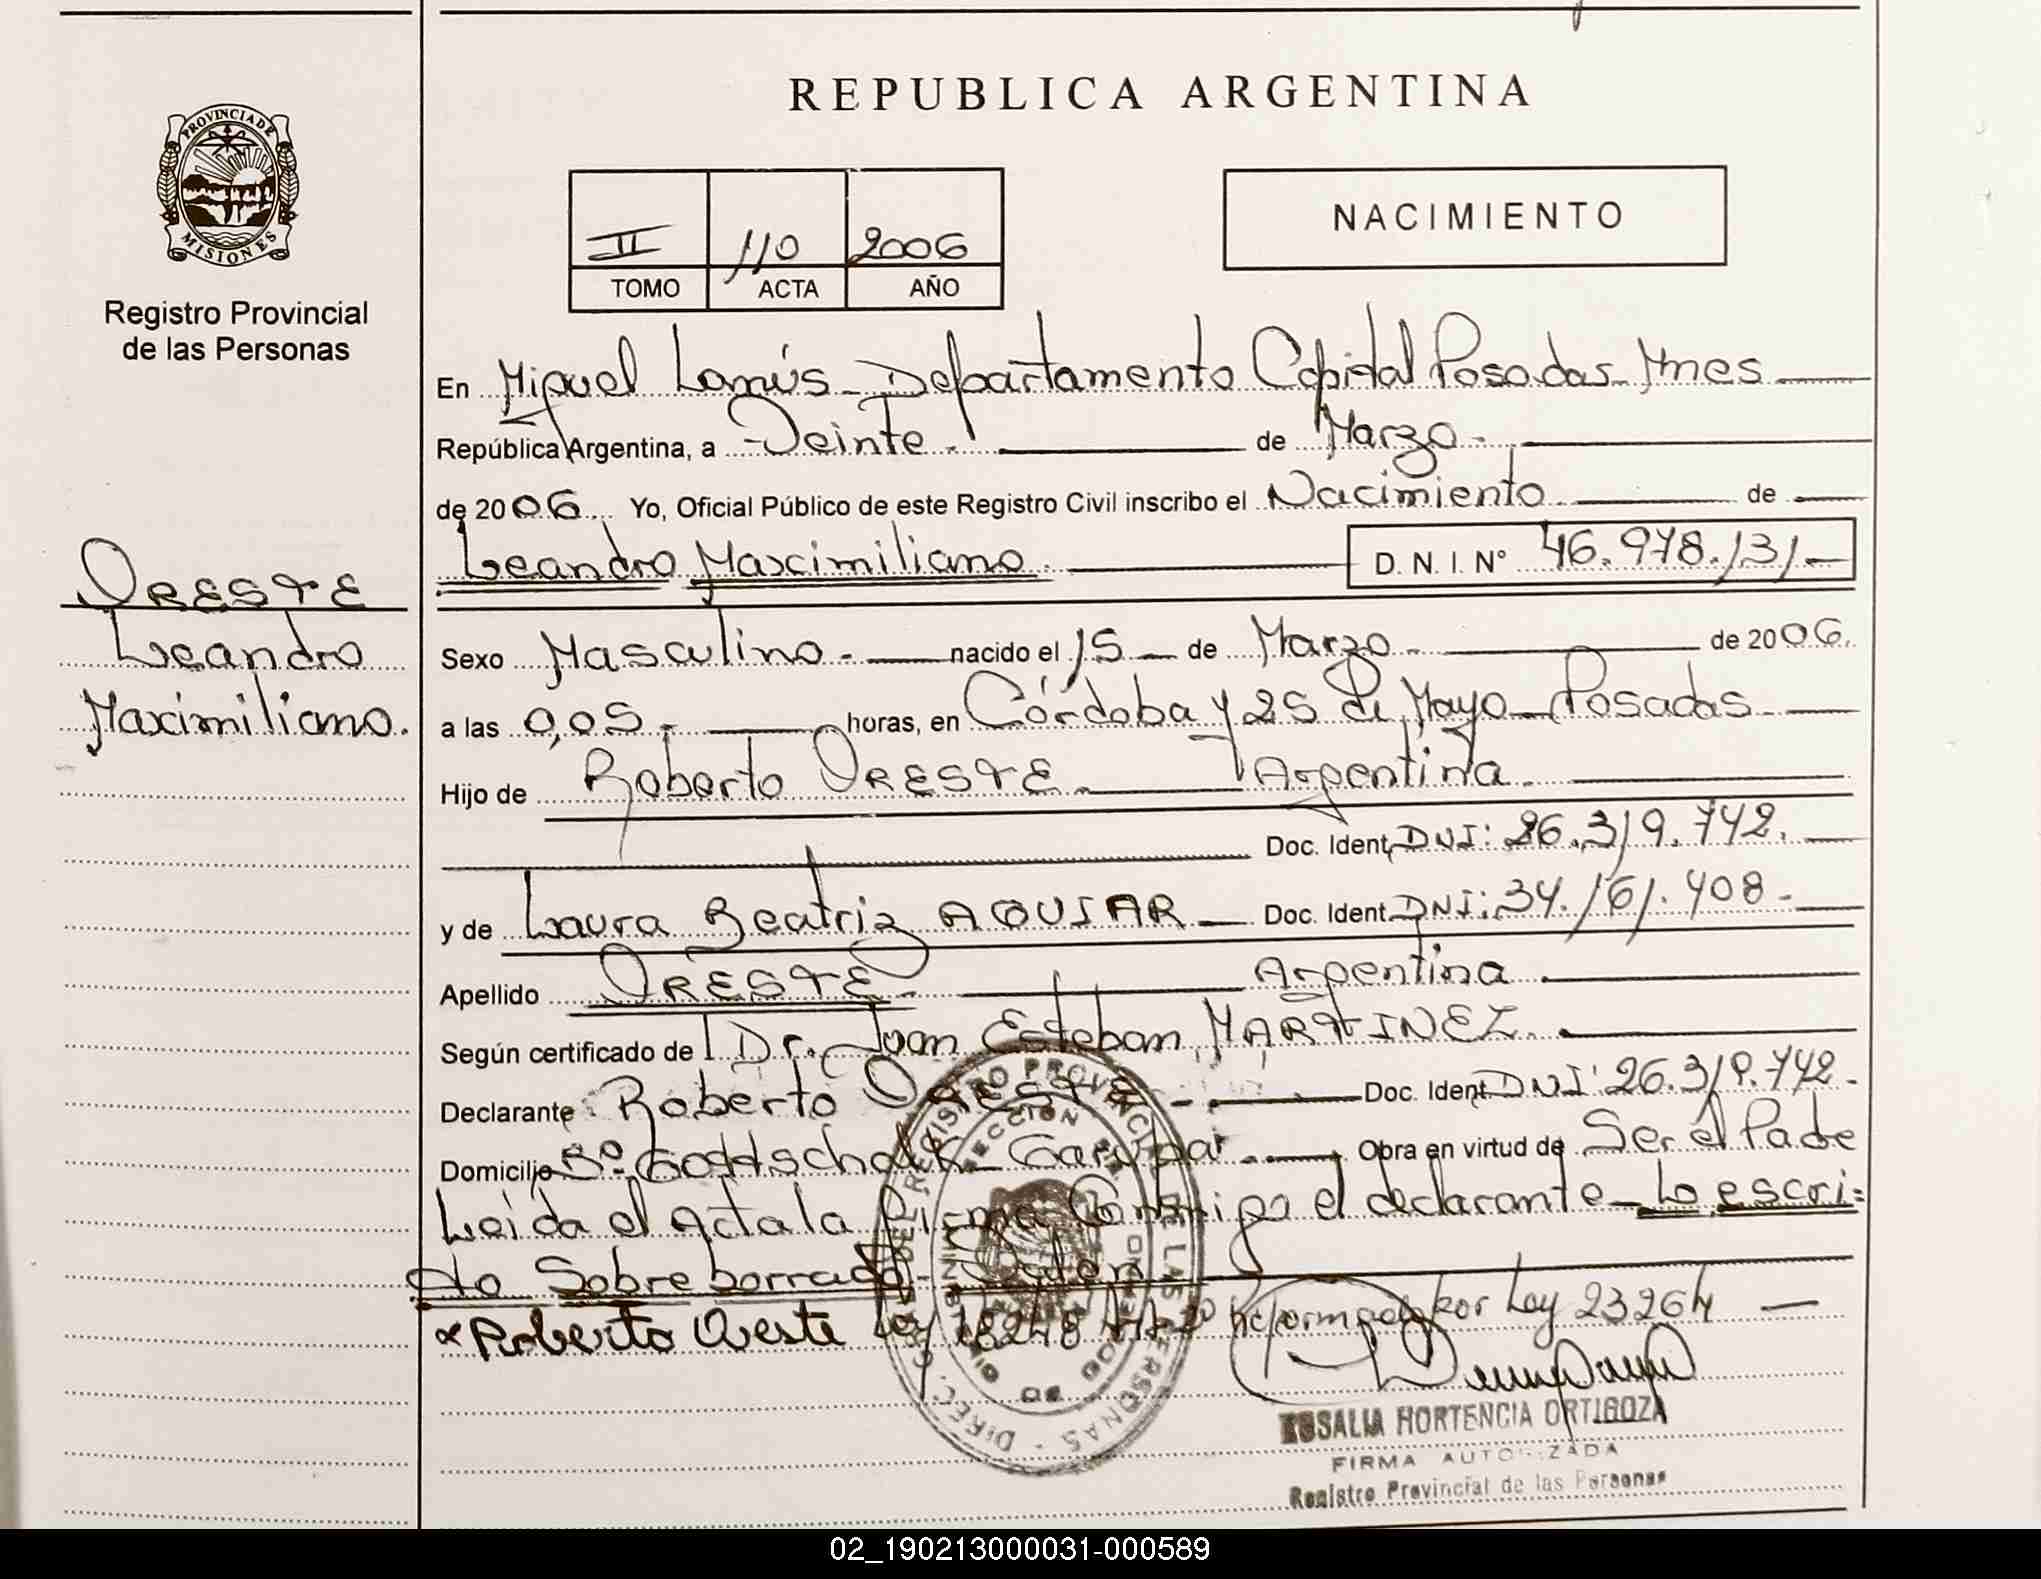 REPUBLICA ARGENTINA
PROVINCIA DE
MISIONES
Registro Provincial
de las Personas
II 110 2006
TOMO ACTA AÑO
NACIMIENTO
En Miguel Lanús - Departamento Capital Posadas Mnes
República Argentina, a Veinte - de Marzo -
de 2006 Yo, Oficial Público de este Registro Civil inscribo el Nacimiento de
Leandro Maximiliano D. N. I. N° 46.978.131 -
ORESTE
Leandro
Maximiliano.
Sexo Masculino - nacido el 15 de Marzo - de 2006.
a las 0,05 - horas, en Córdoba y 25 de Mayo - Posadas
Hijo de Roberto ORESTE Argentina
Doc. Ident. DNI: 26.319.742.
y de Laura Beatriz AQUIAR Doc. Ident. DNI: 34.161.408 -
Apellido ORESTE - Argentina
Según certificado de Dr. Juan Esteban MARTINEZ
Declarante Roberto ORESTE - Doc. Ident DNI: 26.319.742 -
Domicilio Bº Gottschalk - Garupá - Obra en virtud de Ser el Padre
Leida el Acta la Firma Conmigo el declarante - Lo escri=
to Sobre borrado -
Roberto Oreste Ley 18248 por Ley 23264
ROSALIA HORTENCIA ORTIGOZA
FIRMA AUTORIZADA
Registro Provincial de las Personas
02_190213000031-000589